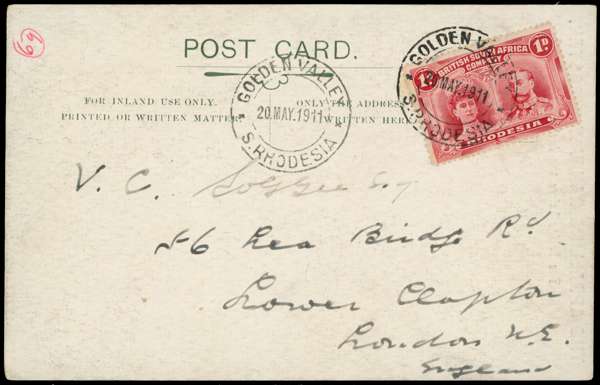 69
POST CARD.
FOR INLAND USE ONLY.
PRINTED OR WRITTEN MATTER
ONLY THE ADDRESS
WRITTEN HERE
GOLDEN VALLEY
20 MAY. 1911
S. RHODESIA
BRITISH SOUTH AFRICA
COMPANY
1D 1D
RHODESIA
GOLDEN VALLEY
20 MAY. 1911
S. RHODESIA
V. C.
56 Lea Bridge Rd
Lower Clapton
London N.E.
England